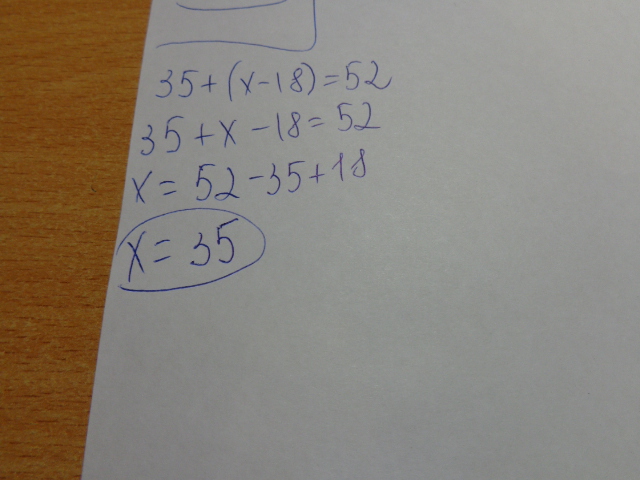 35+(x-18)=52
35+x-18=52
x=52-35+18
x=35